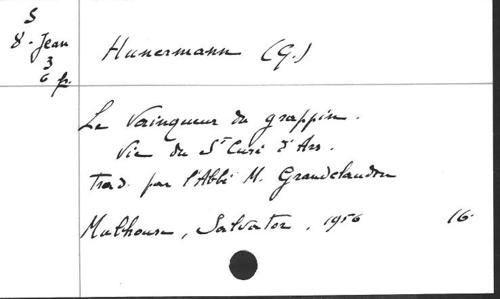 S
8 - Jean
3
6 fr.
Hunermann (G.)
Le Vainqueur du grappin.
Vie du St Curé d'Ars.
Trad. par l'Abbé M. Grandclaudon
Mulhouse, Salvator, 1956 16.